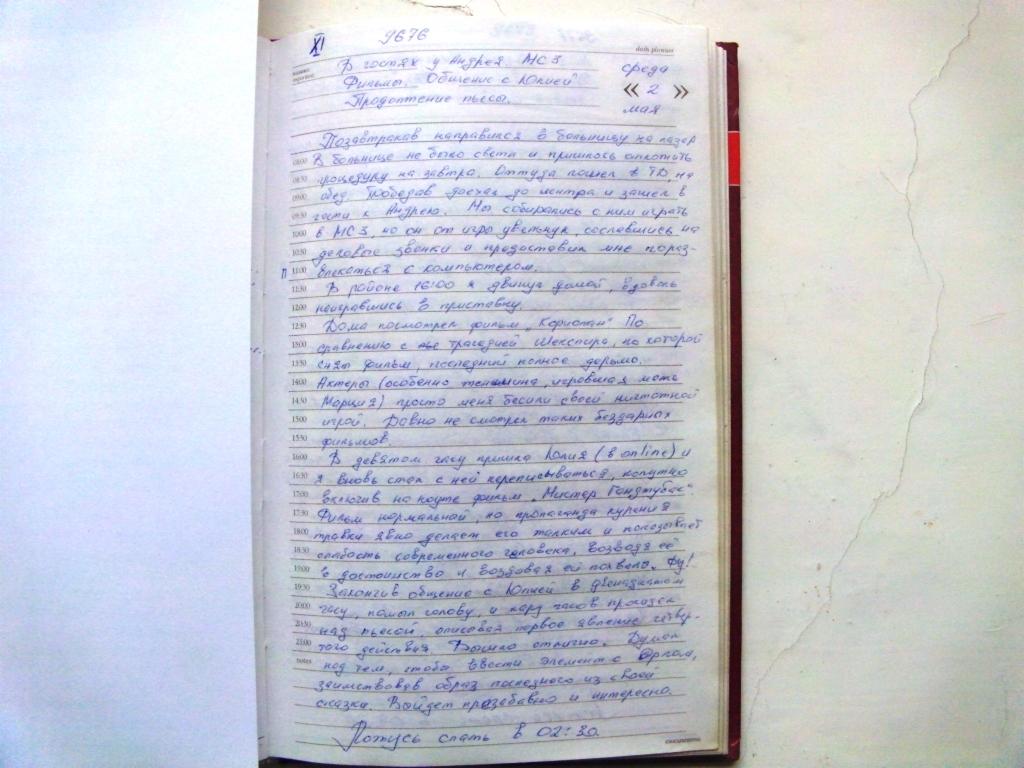 XI 9676
date planner
В гостях у Андрея. МС3.
Фильмы. Общение с Юлией
Продолжение пьесы.
среда
« 2 »
мая
Позавтракав направился в больницу на лазер
08:00 В больнице не было света и пришлось отложить
08:30 процедуру на завтра. Оттуда пошел в ТД, на
09:00 обед. Пообедав доехал до центра и зашел в
09:30 гости к Андрею. Мы собирались с ним играть
10:00 в МС3, но он от игры увельнул, сославшись на
10:30 деловые звонки и предоставил мне пораз-
п 11:00 влекаться с компьютером.
11:30 В районе 16:00 я двинул домой, вдоволь
12:00 наигравшись в приставку.
12:30 Дома посмотрел фильм „Кориолан“ По
13:00 сравнению с трагедией Шекспира, по которой
13:30 снят фильм, последний полное дерьмо.
14:00 Актеры (особенно женщина, игровшая мать
14:30 Марция) просто меня бесили своей ничтожной
15:00 игрой. Давно не смотрел таких бездарных
15:30 фильмов.
16:00 В девятом часу пришла Юлия (в online) и
16:30 я вновь стал с ней переписываться, попутно
17:00 включив на ноуте фильм „Мистер Ганджубас“.
17:30 Фильм нормальной, но пропаганда курения
18:00 травки явно делает его жалким и показывает
18:30 слабость современного человека, возводя её
19:00 в достоинство и воздавая ей похвалы. Фу!
19:30 Закончив общение с Юлией в двенадцатом
20:00 часу, помыл голову, и пару часов просидел
20:30 над пьесой, описовая первое явление четвер-
21:00 того действия. Вышло отлично. Думал
notes над тем, чтобы ввести элемент с Орлом,
заимствовав образ последнего из своей
сказки. Выйдет презабавно и интересно.
Ложусь спать в 02:30.